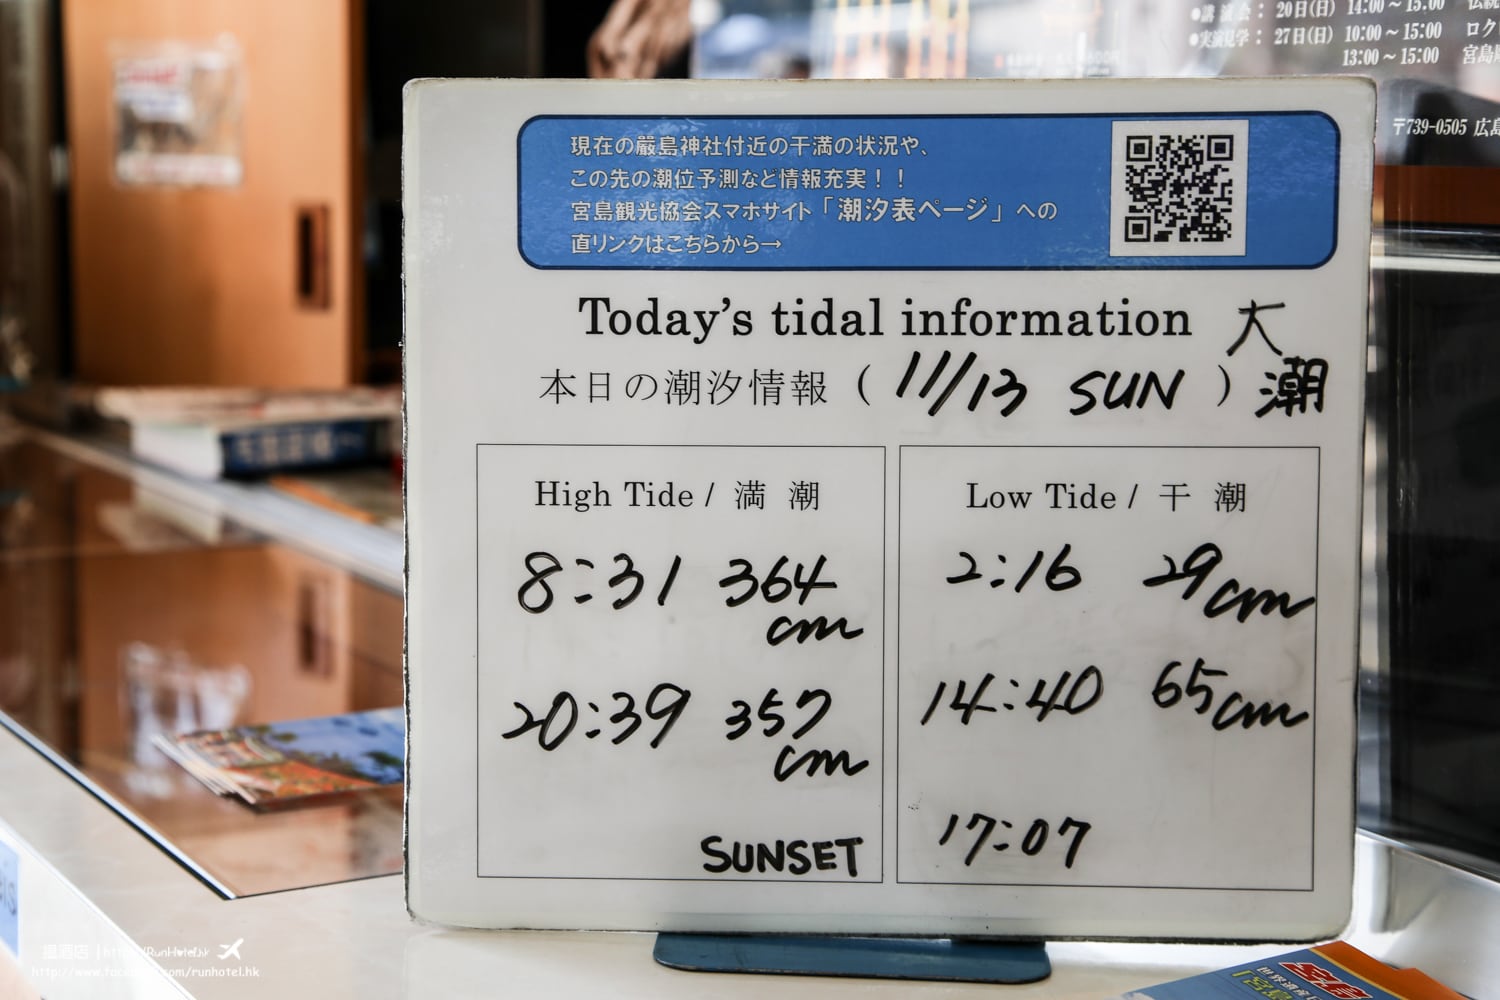 ●講演会： 20日(日) 14:00～15:00
●実演見学： 27日(日) 10:00～15:00 ロク
13:00～15:00 宮島
〒739-0505 広島
現在の嚴島神社付近の干満の状況や、
この先の潮位予測など情報充実！！
宮島観光協会スマホサイト「潮汐表ページ」への
直リンクはこちらから→
Today's tidal information 大
本日の潮汐情報（ 11/13 SUN ）潮
High Tide / 満 潮
8:31 364
cm
20:39 357
cm
SUNSET
Low Tide / 干 潮
2:16 29cm
14:40 65cm
17:07
世界遺産
RunHotel.hk
/runhotel.hk